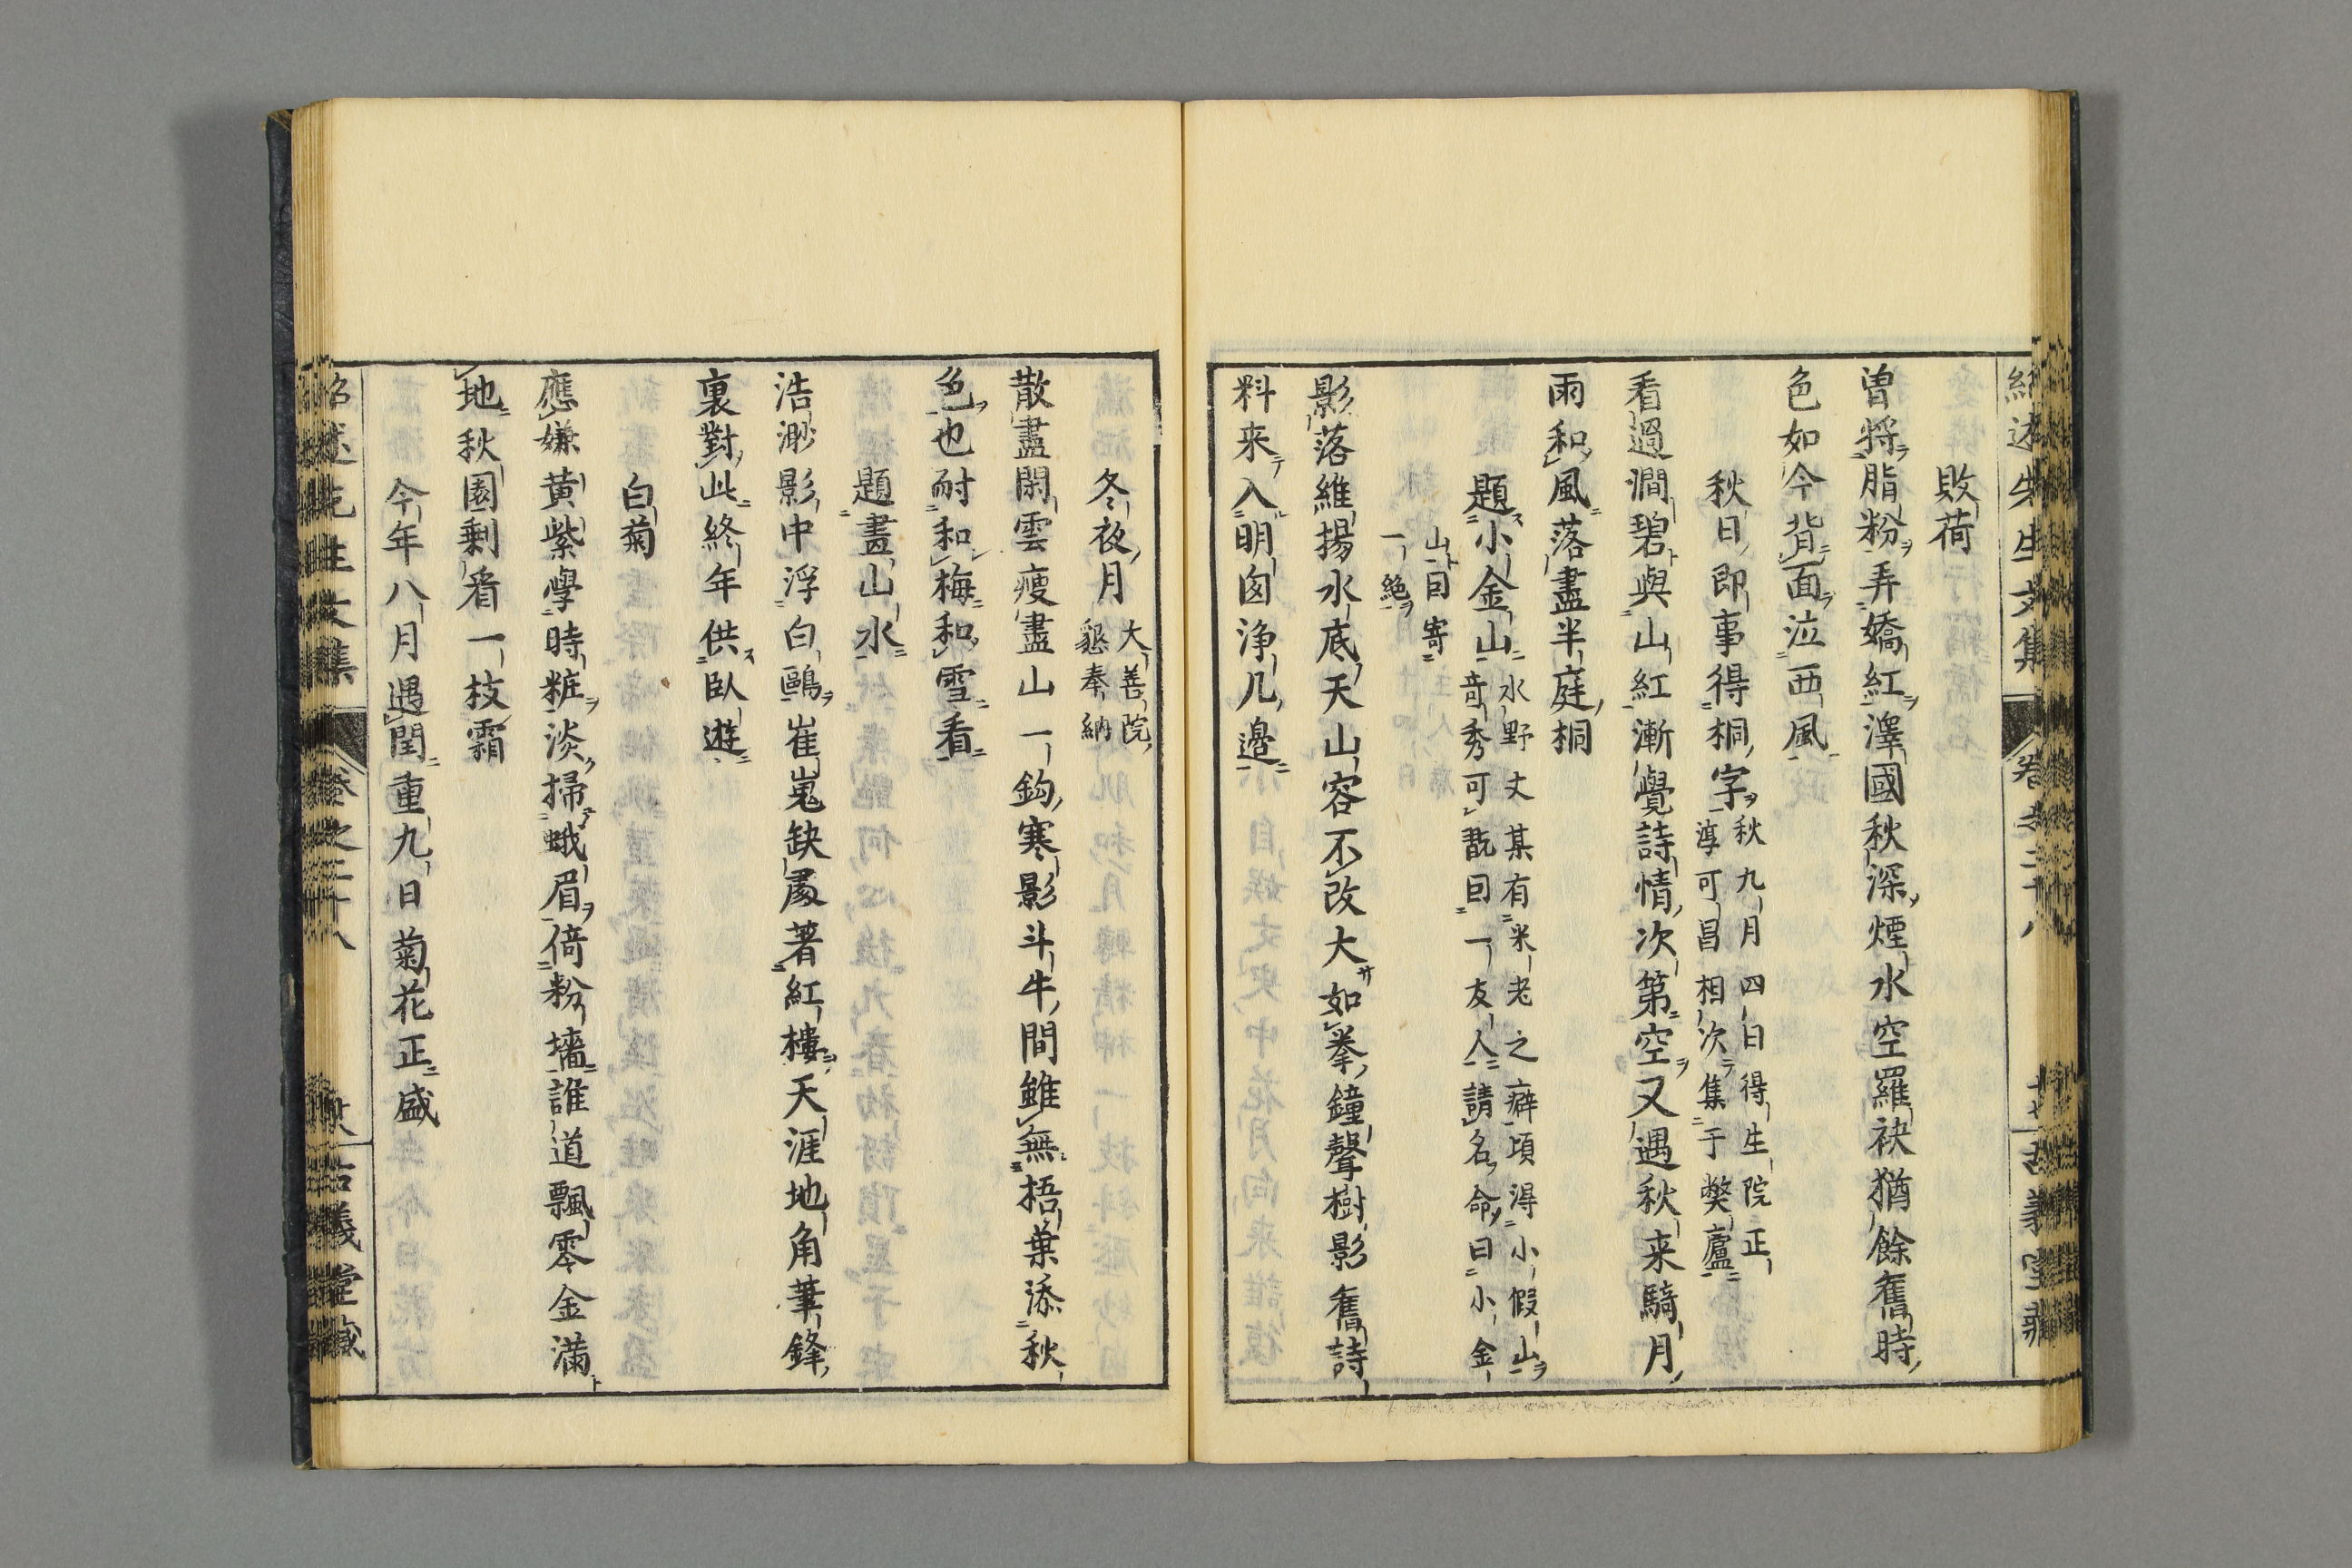 紹述先生文集 卷之二十八 古義堂藏
敗荷
曽将脂粉弄嬌紅澤國秋深煙水空羅袂猶餘舊時
色如今背面泣西風
秋日即事得桐字秋九月四日得生院正
淳可昌相次集于弊廬
看過澗碧與山紅漸覺詩情次第空又遇秋来騎月
雨和風落盡半庭桐
題小金山水野丈某有米老之癖頃得小假山
竒秀可翫曰一友人請名命曰小金
山曰寄
一絶
影落維揚水底天山容不改大如拳鐘聲樹影舊詩
料来入明囪浄几邉
冬夜月大善院
懇奉納
散盡閑雲痩盡山一鈎寒影斗牛間雖無梧葉添秋
色也耐和梅和雪看
題畫山水
浩渺影中浮白鷗崔嵬缺處著紅樓天涯地角筆鋒
裏對此終年供臥遊
白菊
應嫌黄紫學時粧淡掃蛾眉倚粉墻誰道飄零金満
地秋園剰看一枝霜
今年八月遇閏重九日菊花正盛
紹述先生文集 卷之二十八 古義堂藏